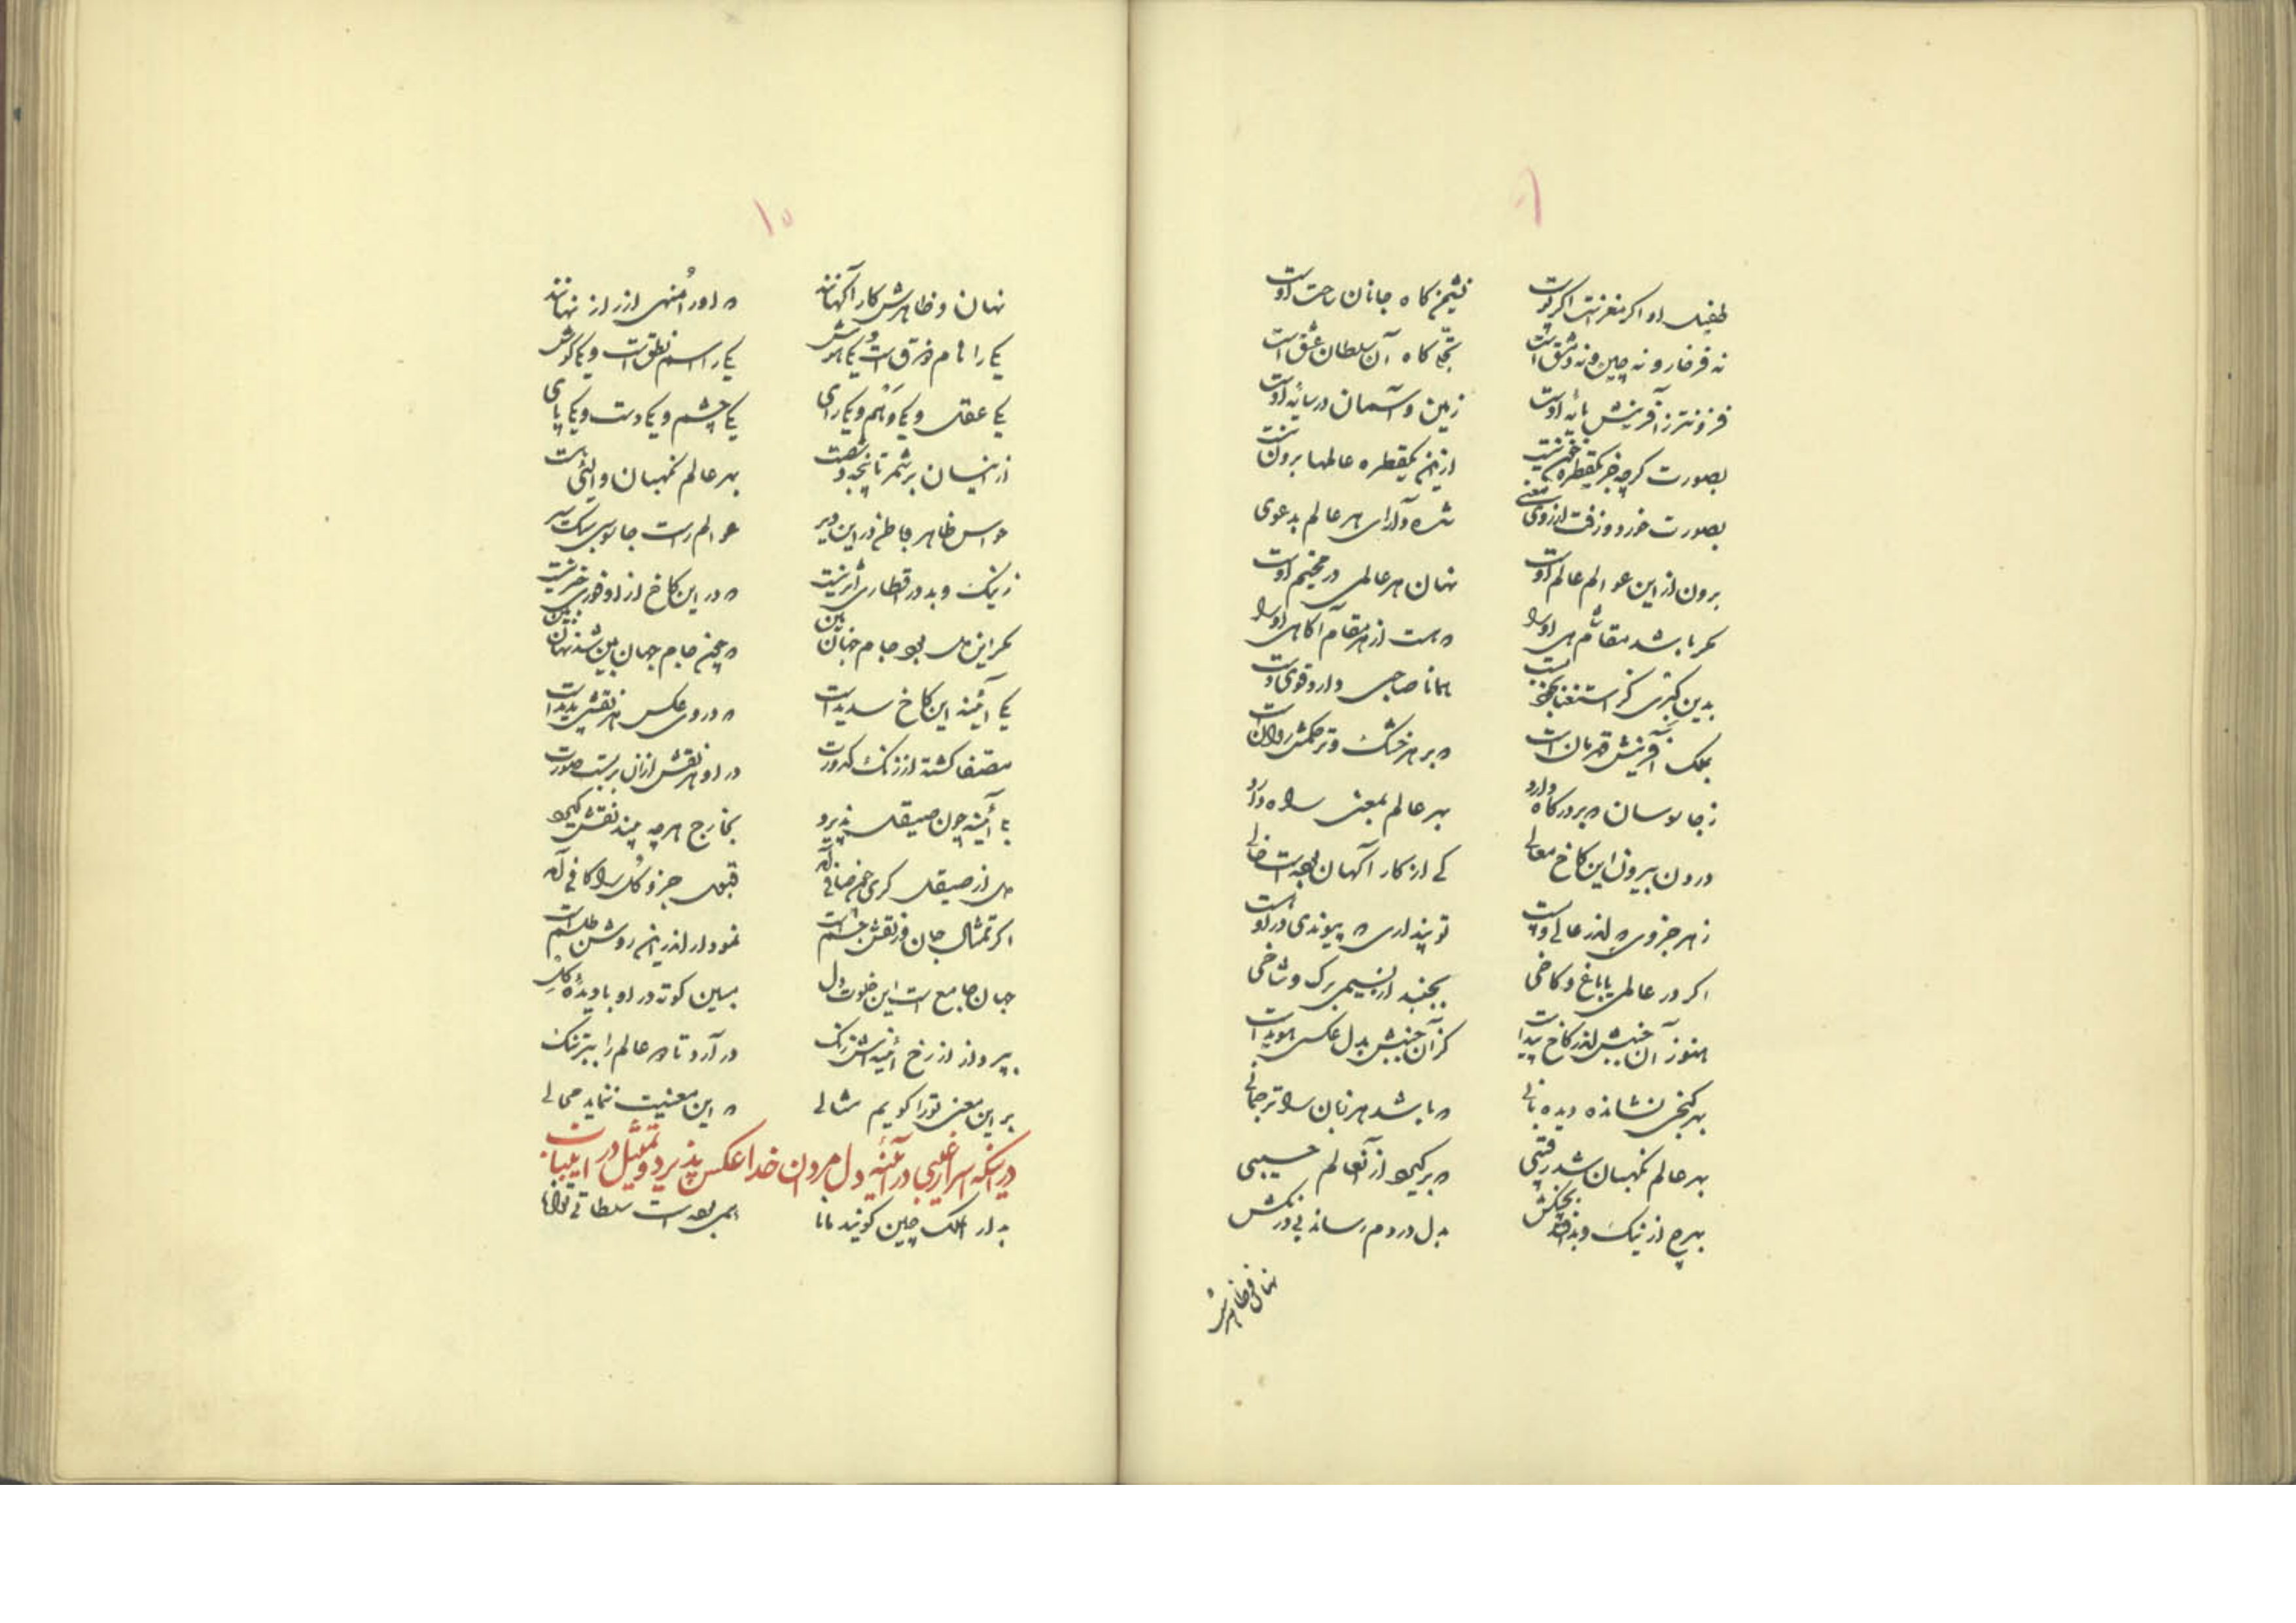 ۹
طفیل او اگر مغز است اگر پوست نشیمن کاه جانان ساحت اوست
نه فرخار و نه چین و نه دمشق است تجلی کاه آن سلطان عشق است
فزونتر ز آفرینش پایهٔ اوست زمین و آسمان در سایهٔ اوست
بصورت کرچه جز یکقطره خون نیست ازین یکقطره عالمها برون نیست
بصورت خرد و زفت از روی معنی شده دارای هر عالم بدعوی
برون از این عوالم عالم اوست نهان هر عالمی در مخیم اوست
مکر باشد مقامی هم اورا که هست از هر مقام آکاهی اورا
بدین کبری کز استغنا بخود بست همانا صاحبی دارد قوی دست
بملک آفرینش قهرمان است که بر هر خشک و تر حکمش روان است
ز جاسوسان که بر درکاه دارد بهر عالم بمعنی راه دارد
درون بیرون این کاخ معالی کی از کار آکهان بوده است خالی
ز هر جزوی که اندر عالی و پست تو پنداری که پیوندی در او هست
اکر در عالمی یا باغ و کاخی بجنبد از نسیمی برک و شاخی
هنوز آن جنبش اندر کاخ پیدا است کز آن جنبش بدل عکسی هویدا است
بهر کنجی نشانده دیده بانی که باشد هر زبان را ترجمانی
بهر عالم نکهبان شد رقیبی که برکیرد از آنعالم حسیبی
بهرچ از نیک و بد افتد بچنکش بدل در دم رساند بی درنکش
نهان و ظاهرش
۱۰
نهان و ظاهرش کار آکهانند که اورا منهی از راز نهانند
یکی را نام ذوق است و یکی هوش یکی را اسم نطق است و یکی کوش
یکی عقل و یکی وهم و یکی رای یکی چشم و یکی دست و یکی پای
از اینسان بر شمر تا پنجه و شصت بهر عالم نکهبان والئی هست
حواس ظاهر و باطن در این دیر عوالم راست جاسوس سبک سیر
ز نیک و بد در اقطار اثر نیست که در این کاخ از او فوری خبر نیست
مکر این دل بود جام جهان بین که چین جام جهان بین شد نهان بین
یکی آئینه این کاخ سدید است که در وی عکس هر نقشی پدید است
مصفا کشته از زنک کدورت در او هر نقش از آن بربست صورت
بلی آئینه چون صیقل پذیرد بخارج هر چه بیند نقش کیرد
دل از صیقل کری چون صافی آمد قبول جزو و کل را کافی آمد
اکر تمثال جان ور نقش جسم است نمودار اندرین روشن طلسم است
جهان جامع است این خلوت دل مبین کوته در او با دیدهٔ کل
بپرداز از رخ آئینه اش زنک در آرد تا که عالم را ببر تنک
بر این معنی تورا کویم مثالی که این معنیت ننماید محالی
در اینکه اسرار غیبی در آئینهٔ دل مردان خدا عکس پذیرد و تمثیل در این باب
بدار الملک چین کویند مانا همی بوده است سلطانی توانا